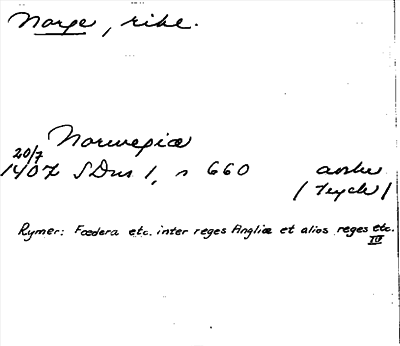 Norge, rike.
Norwegiæ
20/7
1407 SDns 1, s 660 avskr
(tryck)
Rymer: Foedera etc. inter reges Angliæ et alios reges etc.
IV